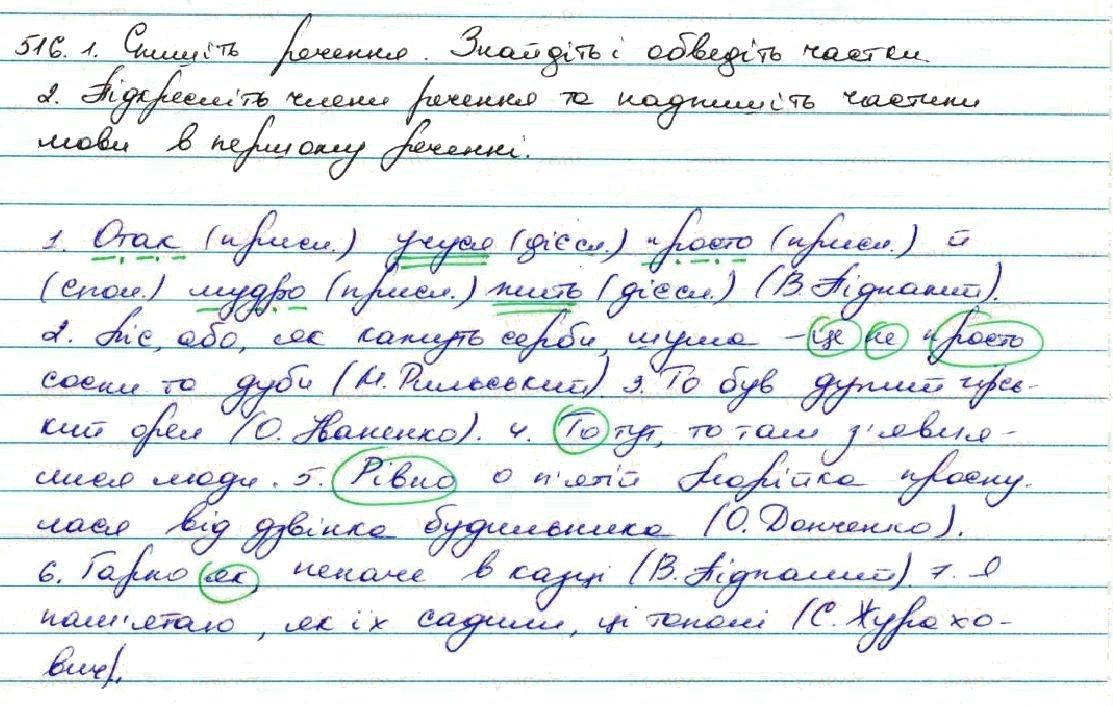 516. 1. Спишіть речення. Знайдіть і обведіть частки.
2. Підкресліть члени речення та надпишіть частини
мови в першому реченні.
1. Отак (присл.) учуся (дієсл.) просто (присл.) й
(спол.) мудро (присл.) жить (дієсл.) (В. Підпалий).
2. Ліс, або, як кажуть серби, шума – це не просто
сосни та дуби (М. Рильський). 3. То був дужий гірсь-
кий орел (О. Іваненко). 4. То тут, то там з'явля-
лися люди. 5. Рівно о п'ятій Марійка просну-
лася від дзвінка будильника (О. Донченко).
6. Гарно як, неначе в казці (В. Підпалий). 7. Я
пам'ятаю, як їх садили, ці тополі (С. Журахо-
вич).